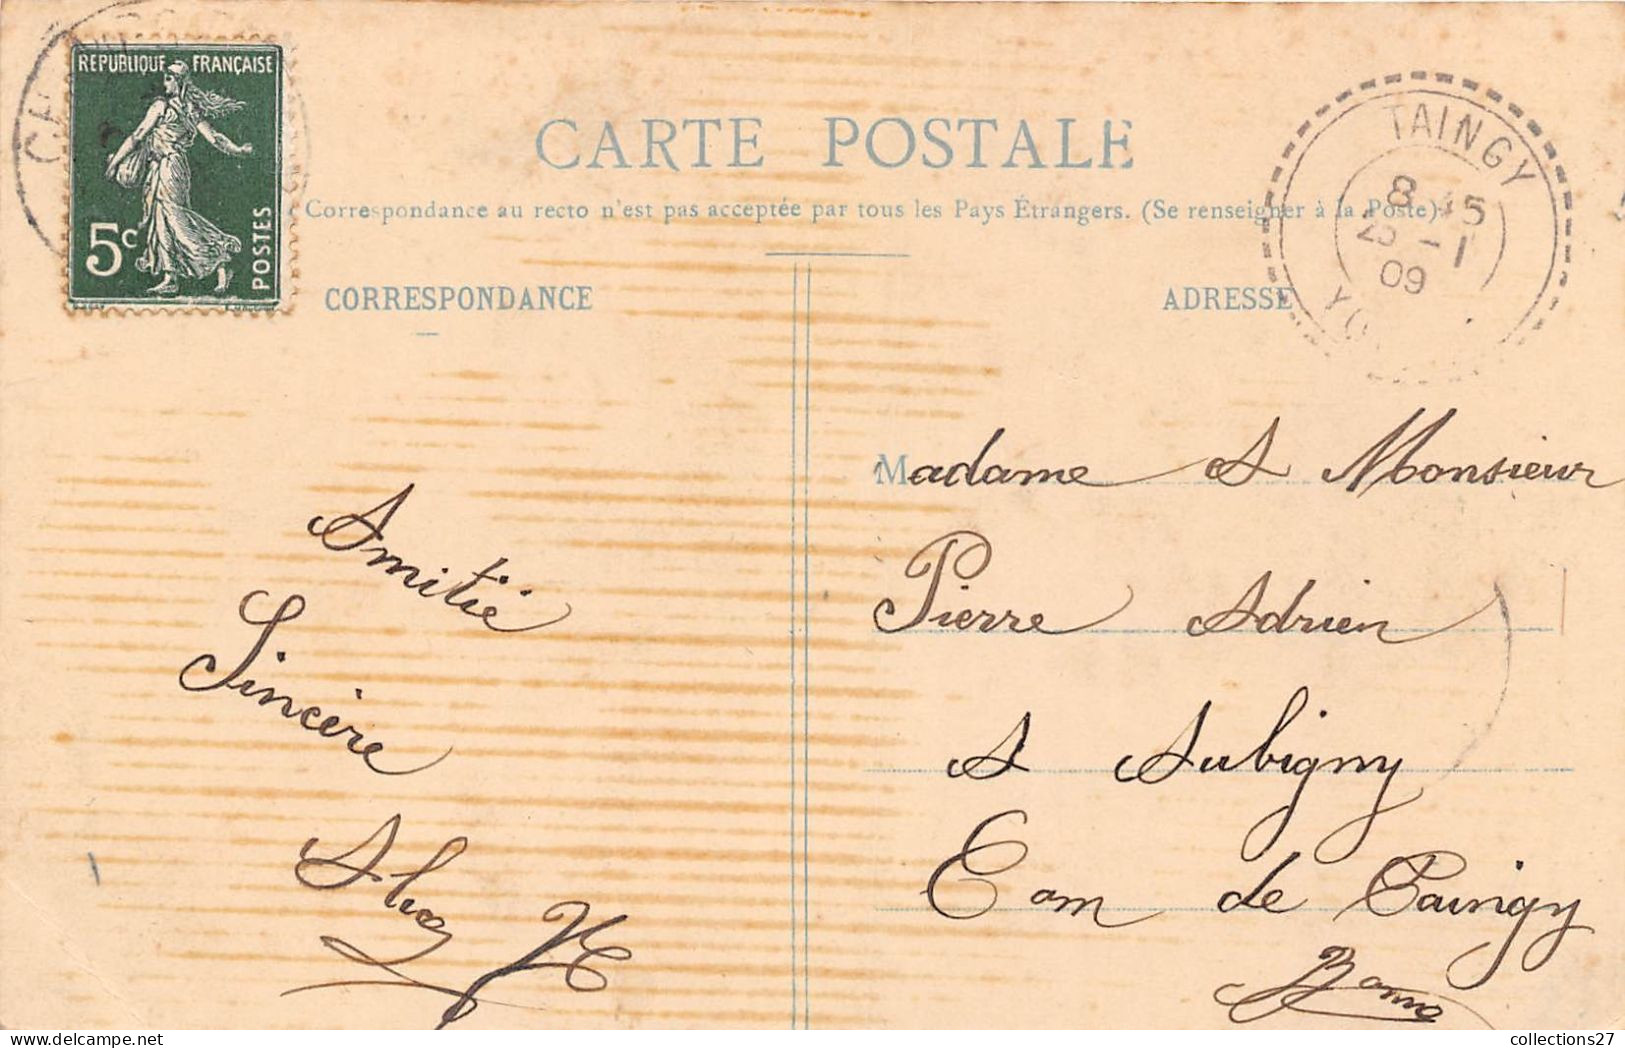 REPUBLIQUE FRANÇAISE
5c
POSTES
CARTE POSTALE
Correspondance au recto n'est pas acceptée par tous les Pays Étrangers. (Se renseigner à la Poste)
CORRESPONDANCE
ADRESSE
TAINGY
8 15
25 -1
09
YO
Madame & Monsieur
Pierre Adrien
A Aubigny
Com de Taingy
Yonne
Amitié
Sincère
collections27